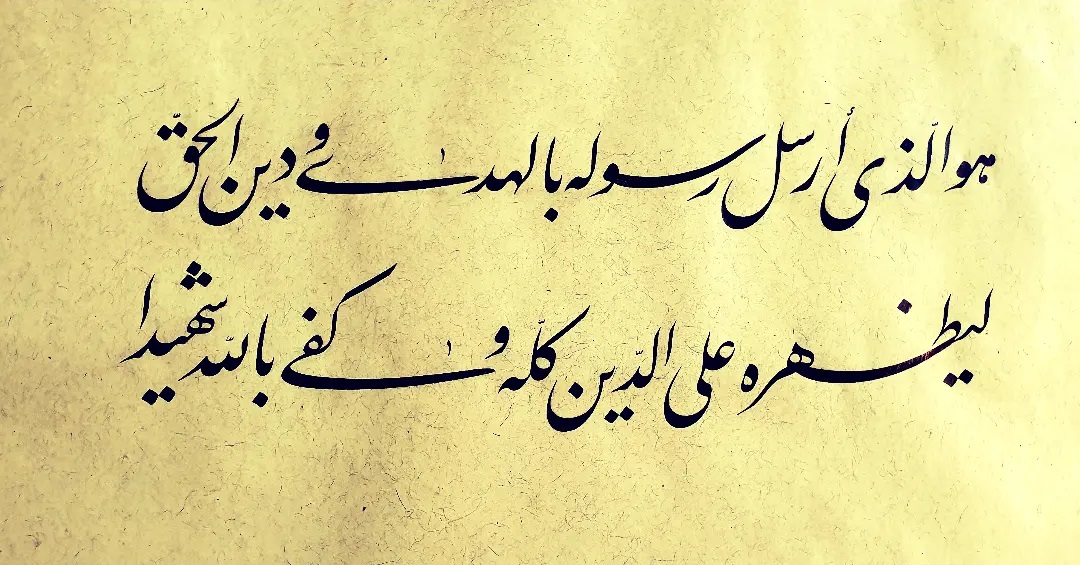 هو الّذی أرسل رسوله بالهدیٰ و دین الحقّ
لیظهره علی الدّین کلّه و کفیٰ بالله شهیدا